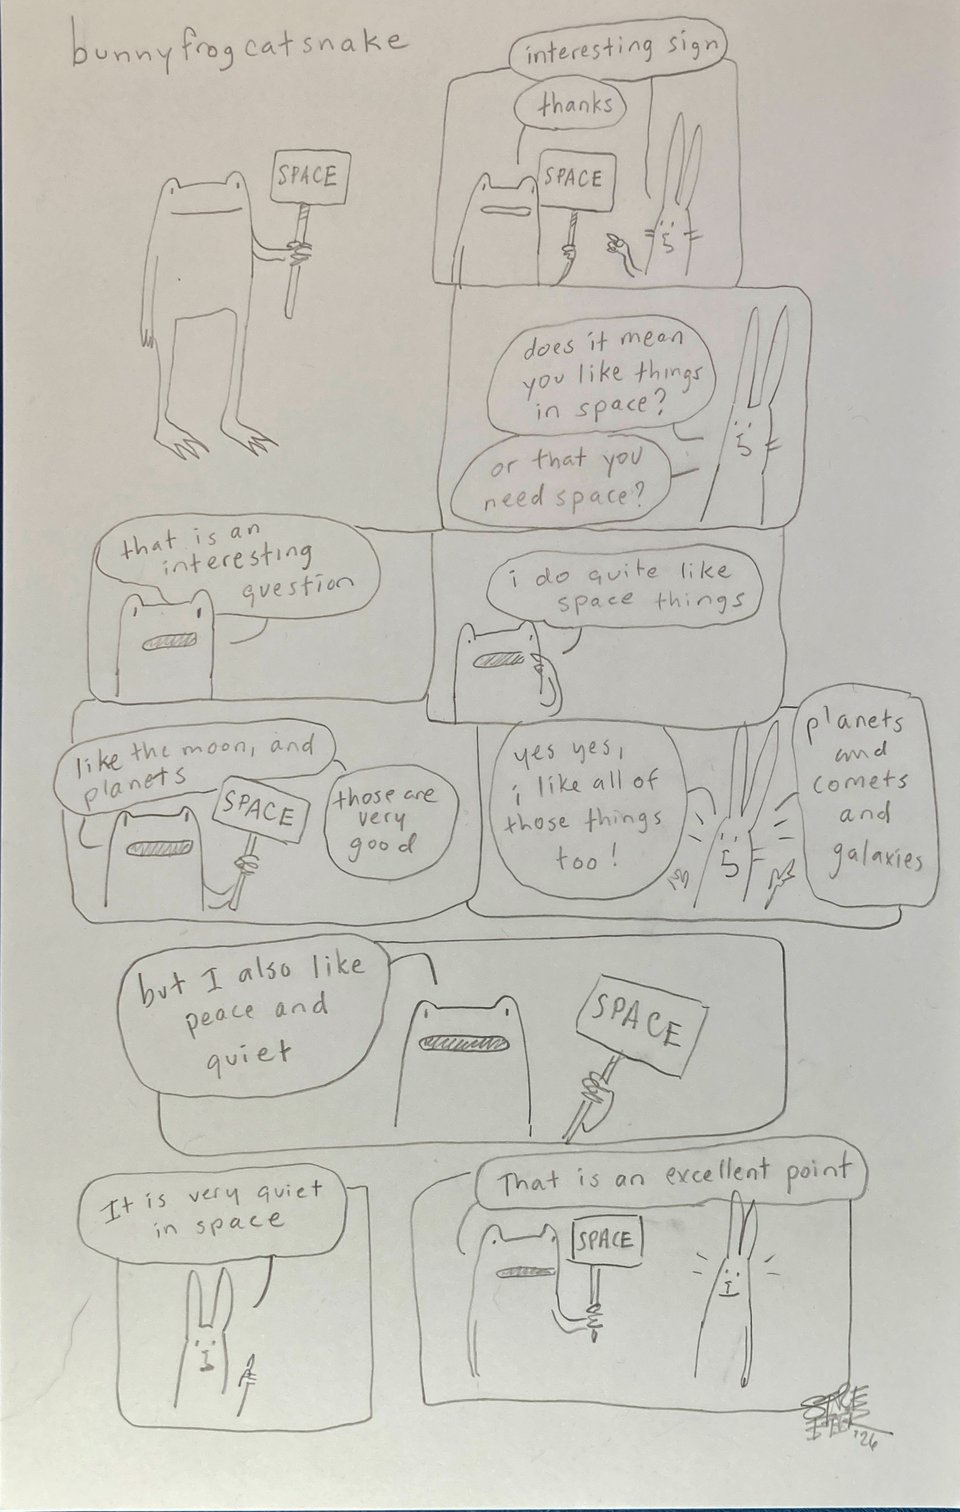 bunnyfrogcatsnake
SPACE
interesting sign
thanks
SPACE
does it mean
you like things
in space?
or that you
need space?
that is an
interesting
question
i do quite like
space things
like the moon, and
planets
SPACE
those are
very
good
yes yes,
i like all of
those things
too!
planets
and
comets
and
galaxies
but I also like
peace and
quiet
SPACE
It is very quiet
in space
That is an excellent point
SPACE
'26